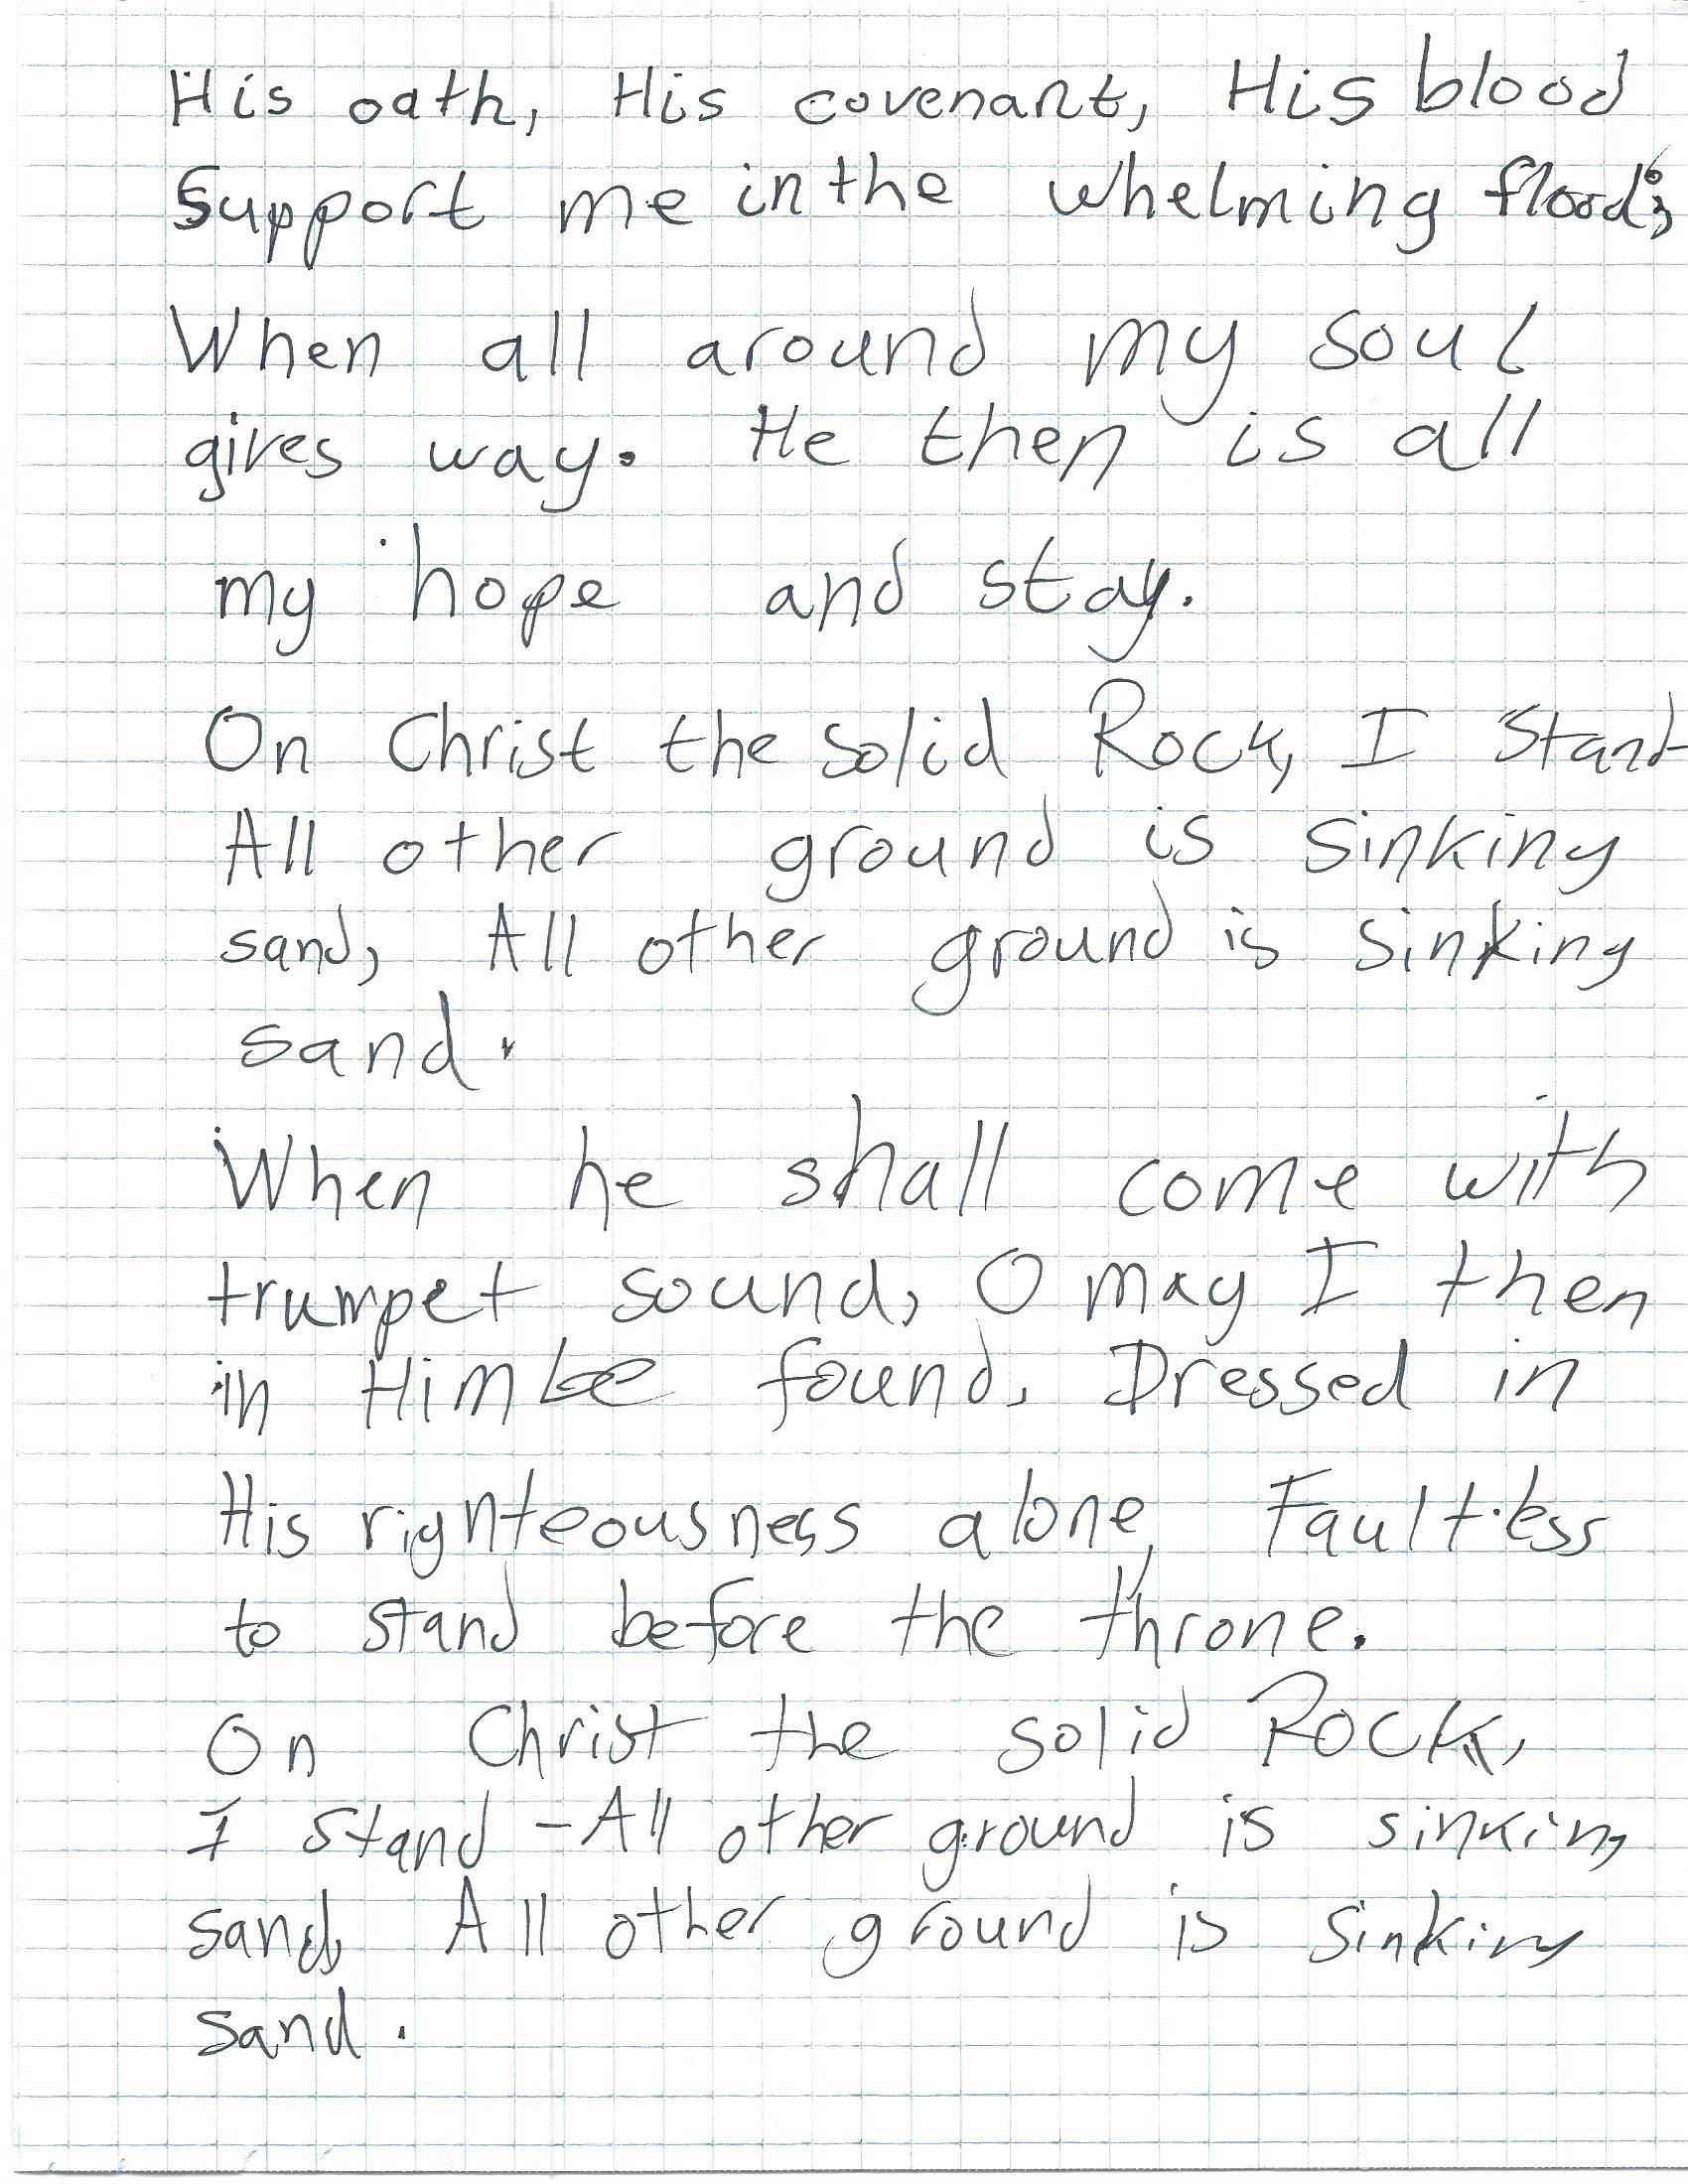 His oath, His covenant, His blood
Support me in the whelming flood;
When all around my soul
gives way. He then is all
my hope and stay.
On Christ the solid Rock, I Stand
All other ground is sinking
sand, All other ground is sinking
sand.
When he shall come with
trumpet sound, O may I then
in Him be found. Dressed in
His righteousness alone, Faultless
to stand before the throne.
On Christ the solid Rock,
I Stand - All other ground is sinking
sand, All other ground is sinking
sand.